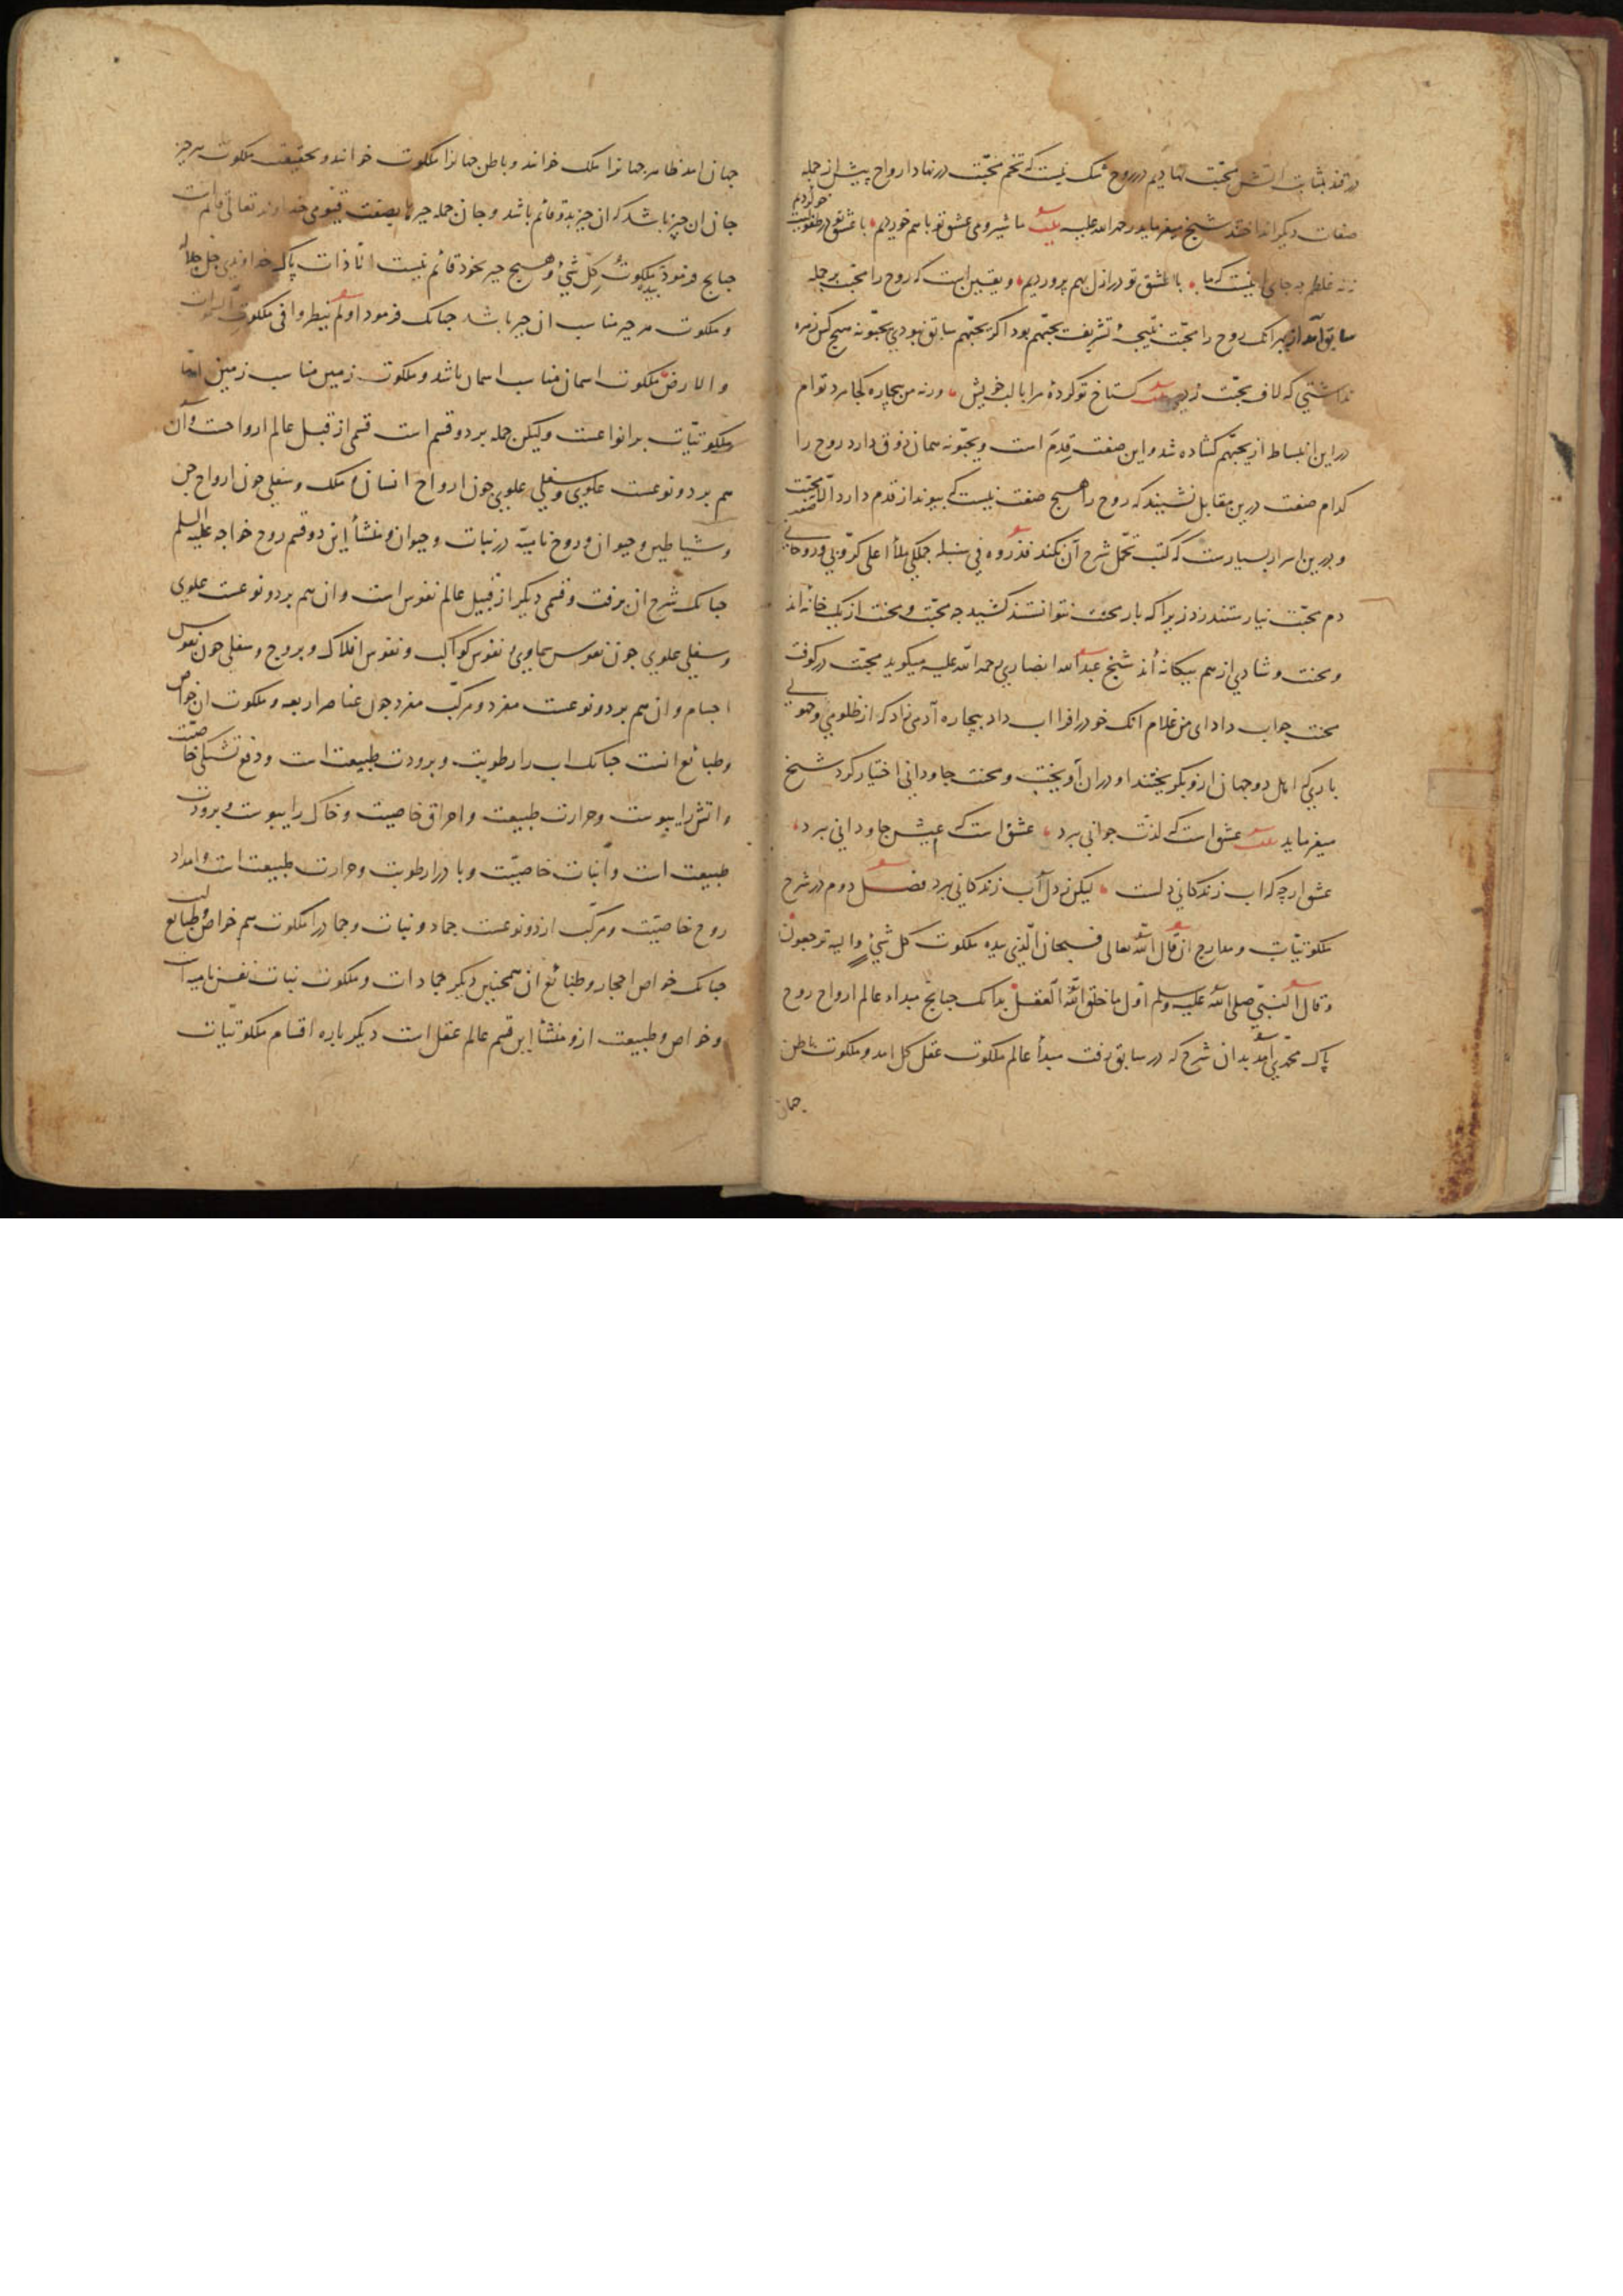 در قند بشابت آتش محبّت نهاديم در روح شک نيست که تخم محبّت در نهاد ارواح پيش از جمله
صفات ديکر انداختند شيخ ميفرمايد رحمه الله عليه بيت ما شير و می عشق تو باهم خورديم با عشق تو در طفوليت
خو کرديم
نه غلطم چه جای اينست که ما با عشق تو در ازل بهم پرورديم و يقين است که روح را محبّت بر جمله
سابق آمد از بهر انک روح را محبّت نتيجهٔ تشريف يحبّهم بود اکر يحبّهم سابق نبودي بر يحبّونه هيچ کس زهره
نداشتي که لاف محبّت زدي بيت کستاخ تو کردهٔ مرا با لب خويش ورنه من بيچاره کجا مرد توام
در اين انبساط از يحبّهم کشاده شد و اين صفت قِدَم است و يحبّونه همان ذوق دارد روح را
کدام صفت درين مقابل نشيند که روح را هيچ صفت نيست که پيوند از قدم دارد الّا محبّت
و درين اسرار بسيارست که کتب تحمّل شرح آن نکند فذروه في سنبله جملکي ملأ اعلی کرّوبي و روحاني
دم محبّت نيارستند زد زيرا که بار محنت نتوانستند کشيد چه محبّت و محنت از يک خانه‌اند
و محنت و شادي از هم بيکانه‌اند شيخ عبد الله انصاري رحمه الله عليه ميکويد محبّت در کوفت
محنت جواب داد ای من غلام انک خود را فرا اب داد بيچاره آدمی زاد که از ظلومي و جهولي
باري که اهل دو جهان ازو بکريختند او در ان آويخت و محنت جاوداني اختيار کرد شيخ
ميفرمايد بيت عشق است که لذّت جواني ببرد عشق است که عيش جاوداني ببرد
عشق ارچه که اب زندکاني دلست ليکن ز دل آب زندکاني ببرد فصل دوم در شرح
ملکوتيّات و مدارج ان قال الله تعالی فسبحان الّذي بيده ملکوت کل شيءٍ و اليه ترجعون
و قال النبّي صلی الله عليه وسلم اوّل ما خلق الله العقل بدانک چنانچ مبداء عالم ارواح روح
پاک محمّدي آمد بدان شرح که در سابق رفت مبدأ عالم ملکوت عقل کل امد و ملکوت باطن
جهان
جهان امد ظاهر جهانرا ملک خوانند و باطن جهانرا ملکوت خوانند و بحقيقت ملکوت هر چيز
جان ان چيز باشد که ان چيز بدو قائم باشد و جان جمله چيزها بصفت قيّومی خداوند تعالی قائم است
چنانچ فرمود بيده ملکوت کلّ شيءٍ و هيچ چيز بخود قائم نيست الّا ذات پاک خداوندي جلّ جلاله
و ملکوت هر چيز مناسب ان چيز باشد چنانک فرمود اولم ينظروا في ملکوت السموات
و الارض ملکوت اسمان مناسب اسمان باشد و ملکوت زمين مناسب زمين امّا
ملکوتيّات بر انواعست وليکن جمله بر دو قسم است قسمی از قبيل عالم ارواحست و آن
هم بر دو نوعست علوي و سفلي علوي چون ارواح انسان و ملک و سفلي چون ارواح جن
و شياطين و حيوان و روح ناميه در نبات و حيوان و منشأ اين دو قسم روح خواجه عليه السلم
چنانک شرح ان برفت و قسمی ديکر از قبيل عالم نفوس است و ان هم بر دو نوعست علوي
و سفلي علوي چون نفوس سماوي و نفوس کواکب و نفوس افلاک و بروج و سفلي چون نفوس
اجسام و ان هم بر دو نوعست مفرد و مرکّب مفرد چون عناصر اربعه و ملکوت ان خواص
و طبائع انست چنانک اب را رطوبت و برودت طبيعت است و دفع تشنکي خاصيّت
و اتش را يبوست و حرارت طبيعت و احراق خاصيت و خاک را يبوست و برودت
طبيعت است و انبات خاصيّت و باد را رطوبت و حرارت طبيعت است و امداد
روح خاصيّت و مرکّب از دو نوعست جماد و نبات و جماد را ملکوت هم خواص و طبايع است
چنانک خواص احجار و طبائع ان همچنين ديکر جمادات و ملکوت نبات نفس ناميه است
و خواص و طبيعت ازو منشأ اين قسم عالم عقل است ديکر باره اقسام ملکوتيّات